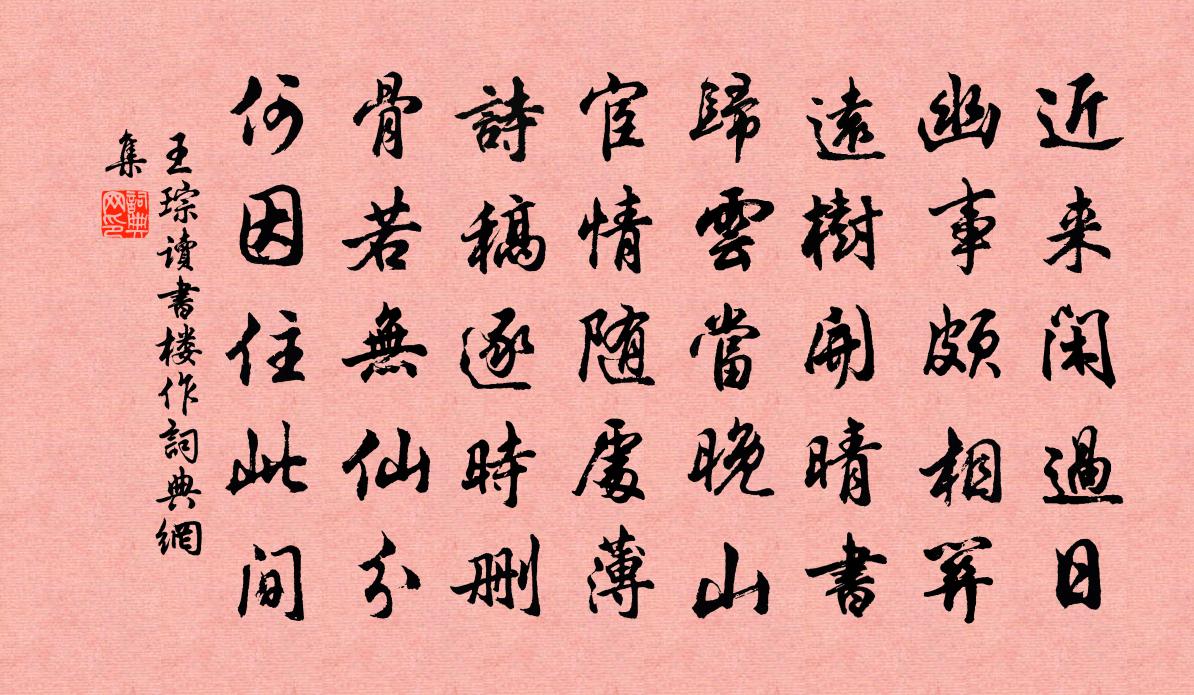 近来闲過日
幽事頗相關
遠樹開晴書
歸雲當晚山
宦情随處薄
詩稿逐時删
骨若無仙分
何因住此间
王琮讀書楼作詞典網
集
詞典網印